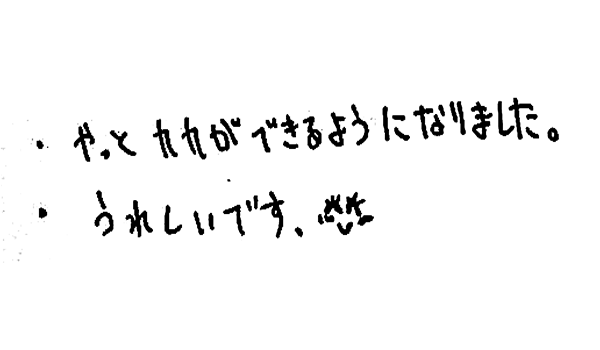 ・やっと九九ができるようになりました。
・うれしいです、